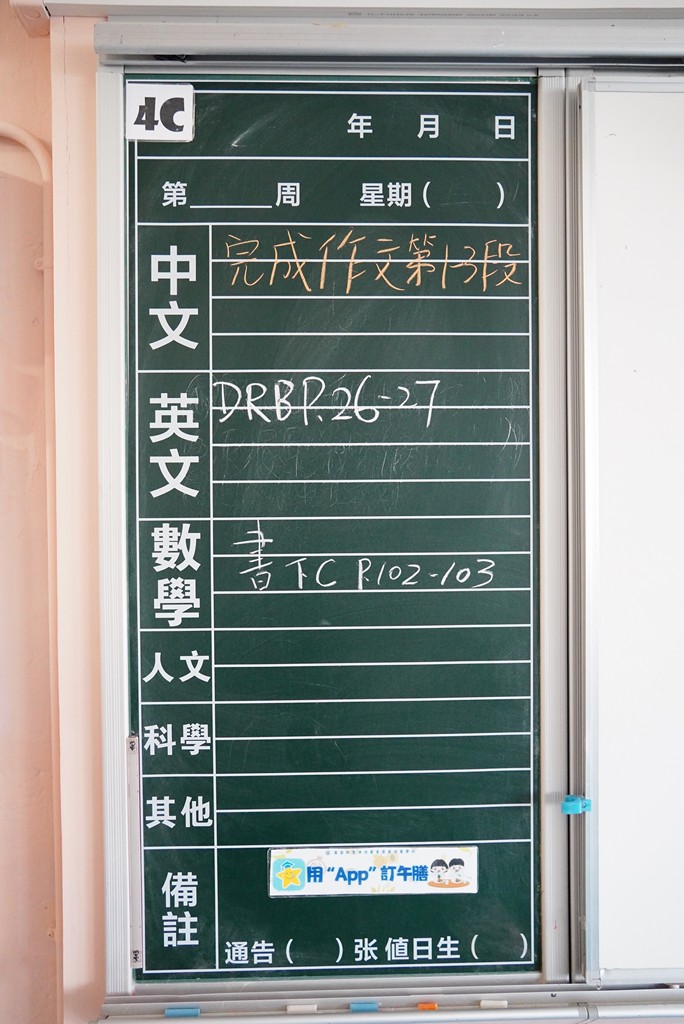 4C
年 月 日
第______周 星期( )
中文
完成作文第13段
英文
DRB P.26-27
數學
書下C P.102-103
人文
科學
其他
備註
用“App”訂午膳
通告( )张 值日生( )